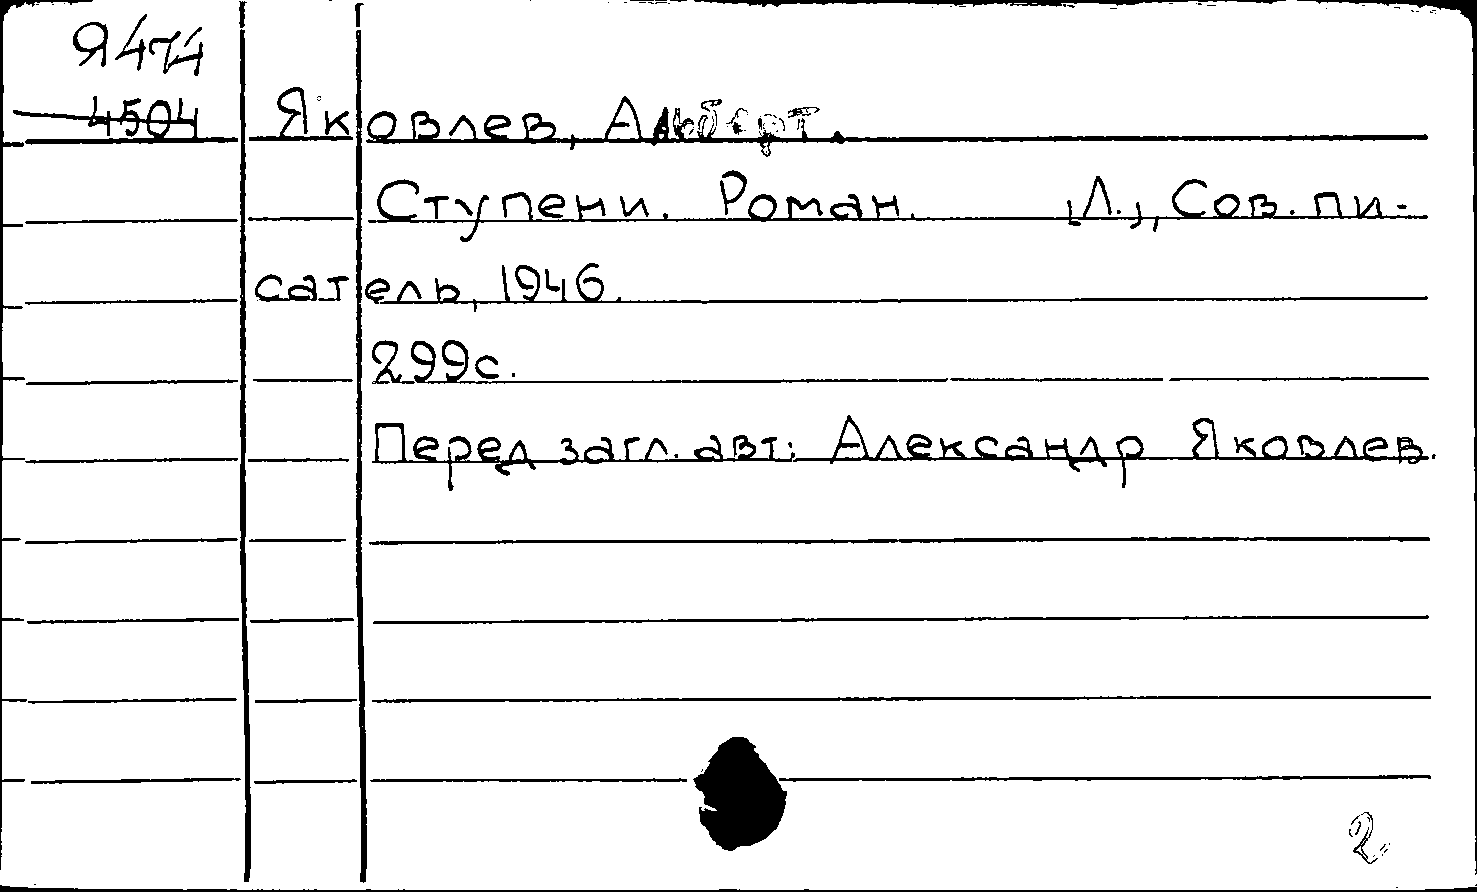 Я474
4504
Яковлев, Альберт.
Ступени. Роман. [Л.], Сов. пи-
сатель, 1946.
299с.
Перед загл. авт: Александр Яковлев.
2